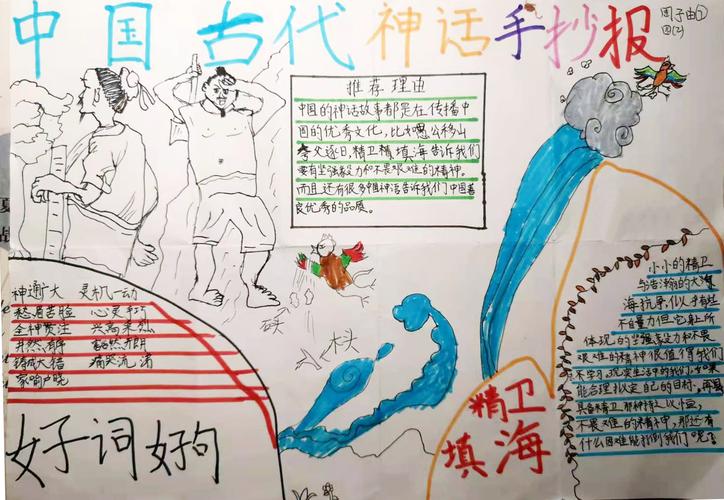 中国古代神话手抄报
周子由②
四(2)
推荐理由
中国的神话故事都是在传播中
国的优秀文化，比如愚公移山
夸父逐日，精卫精填海告诉我们
要有坚强毅力和不畏艰难的精神。
而且还有很多种神话告诉我们中国善
良优秀的品质。
神通广大 灵机一动
愁眉苦脸 心灵手巧
全神贯注 兴高采烈
井然有序 豁然开朗
铸成大错 痛哭流涕
家喻户晓
好词好句
石头
木头
精卫
填海
小小的精卫
与浩瀚的大海
体现的坚强毅力和不畏
艰难的精神很值得我们
能合理拟定自己的目标，再
具备精卫那种持之以恒，
不畏艰难的精神，那还有
什么困难能